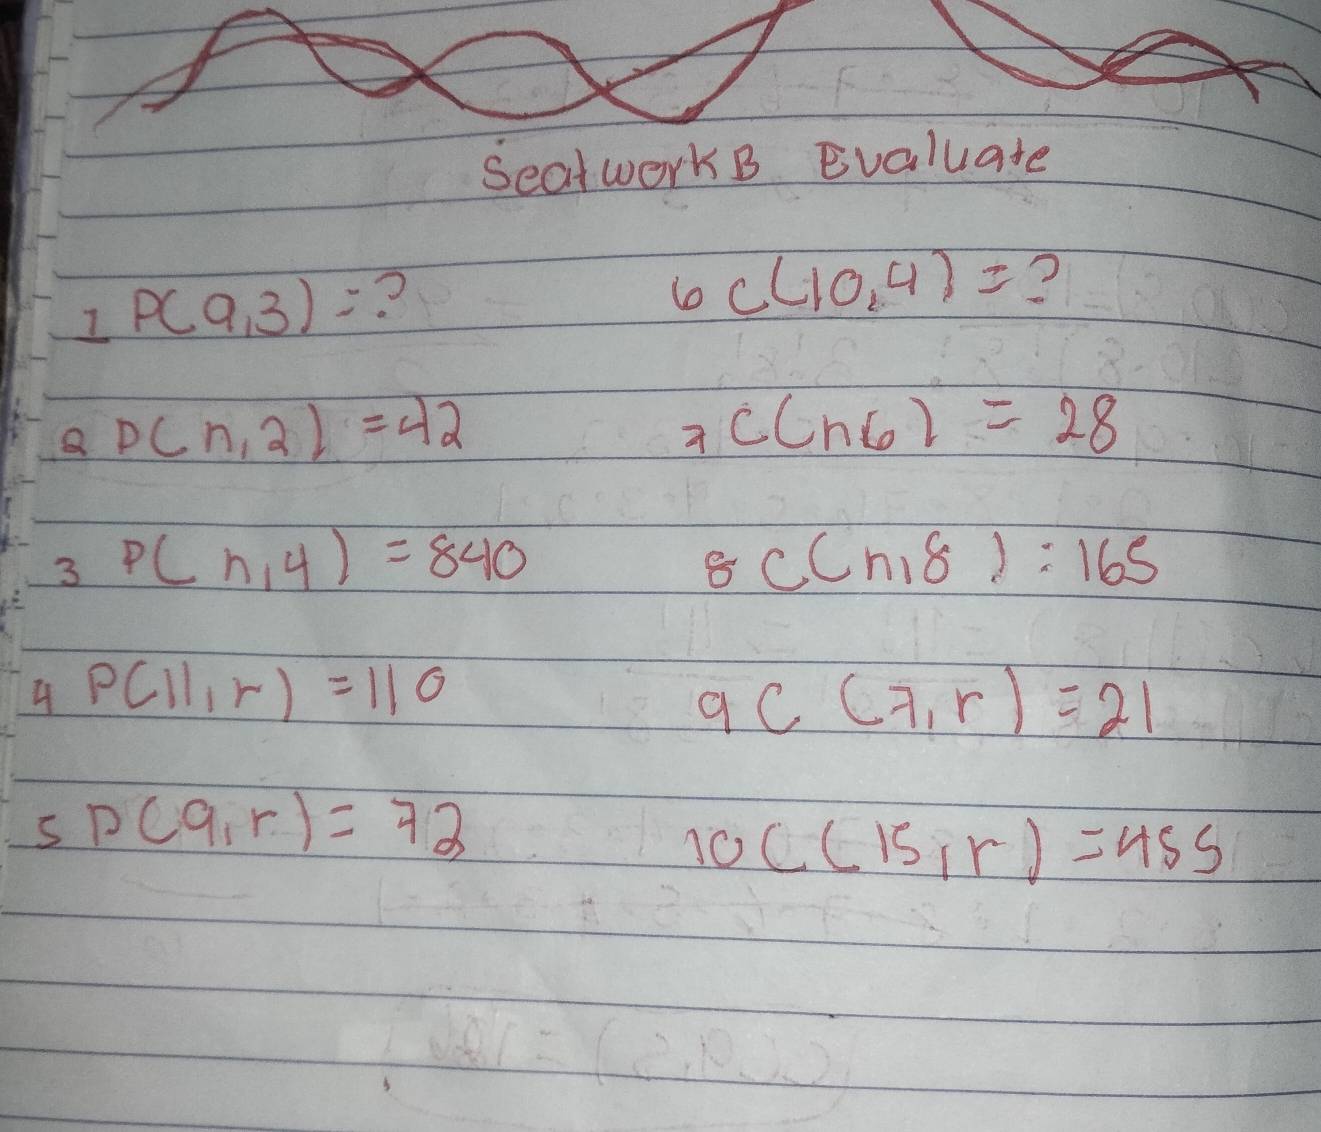 Seatwork B Evaluate
1 P(9,3) = ?
6 C(10,4) = ?
2 P(n,2) = 42
7 C(n6) = 28
3 P(n,4) = 840
8 C(n,8) = 165
4 P(11,r) = 110
9 C (7,r) = 21
5 P(9,r) = 72
10 C(15,r) = 455